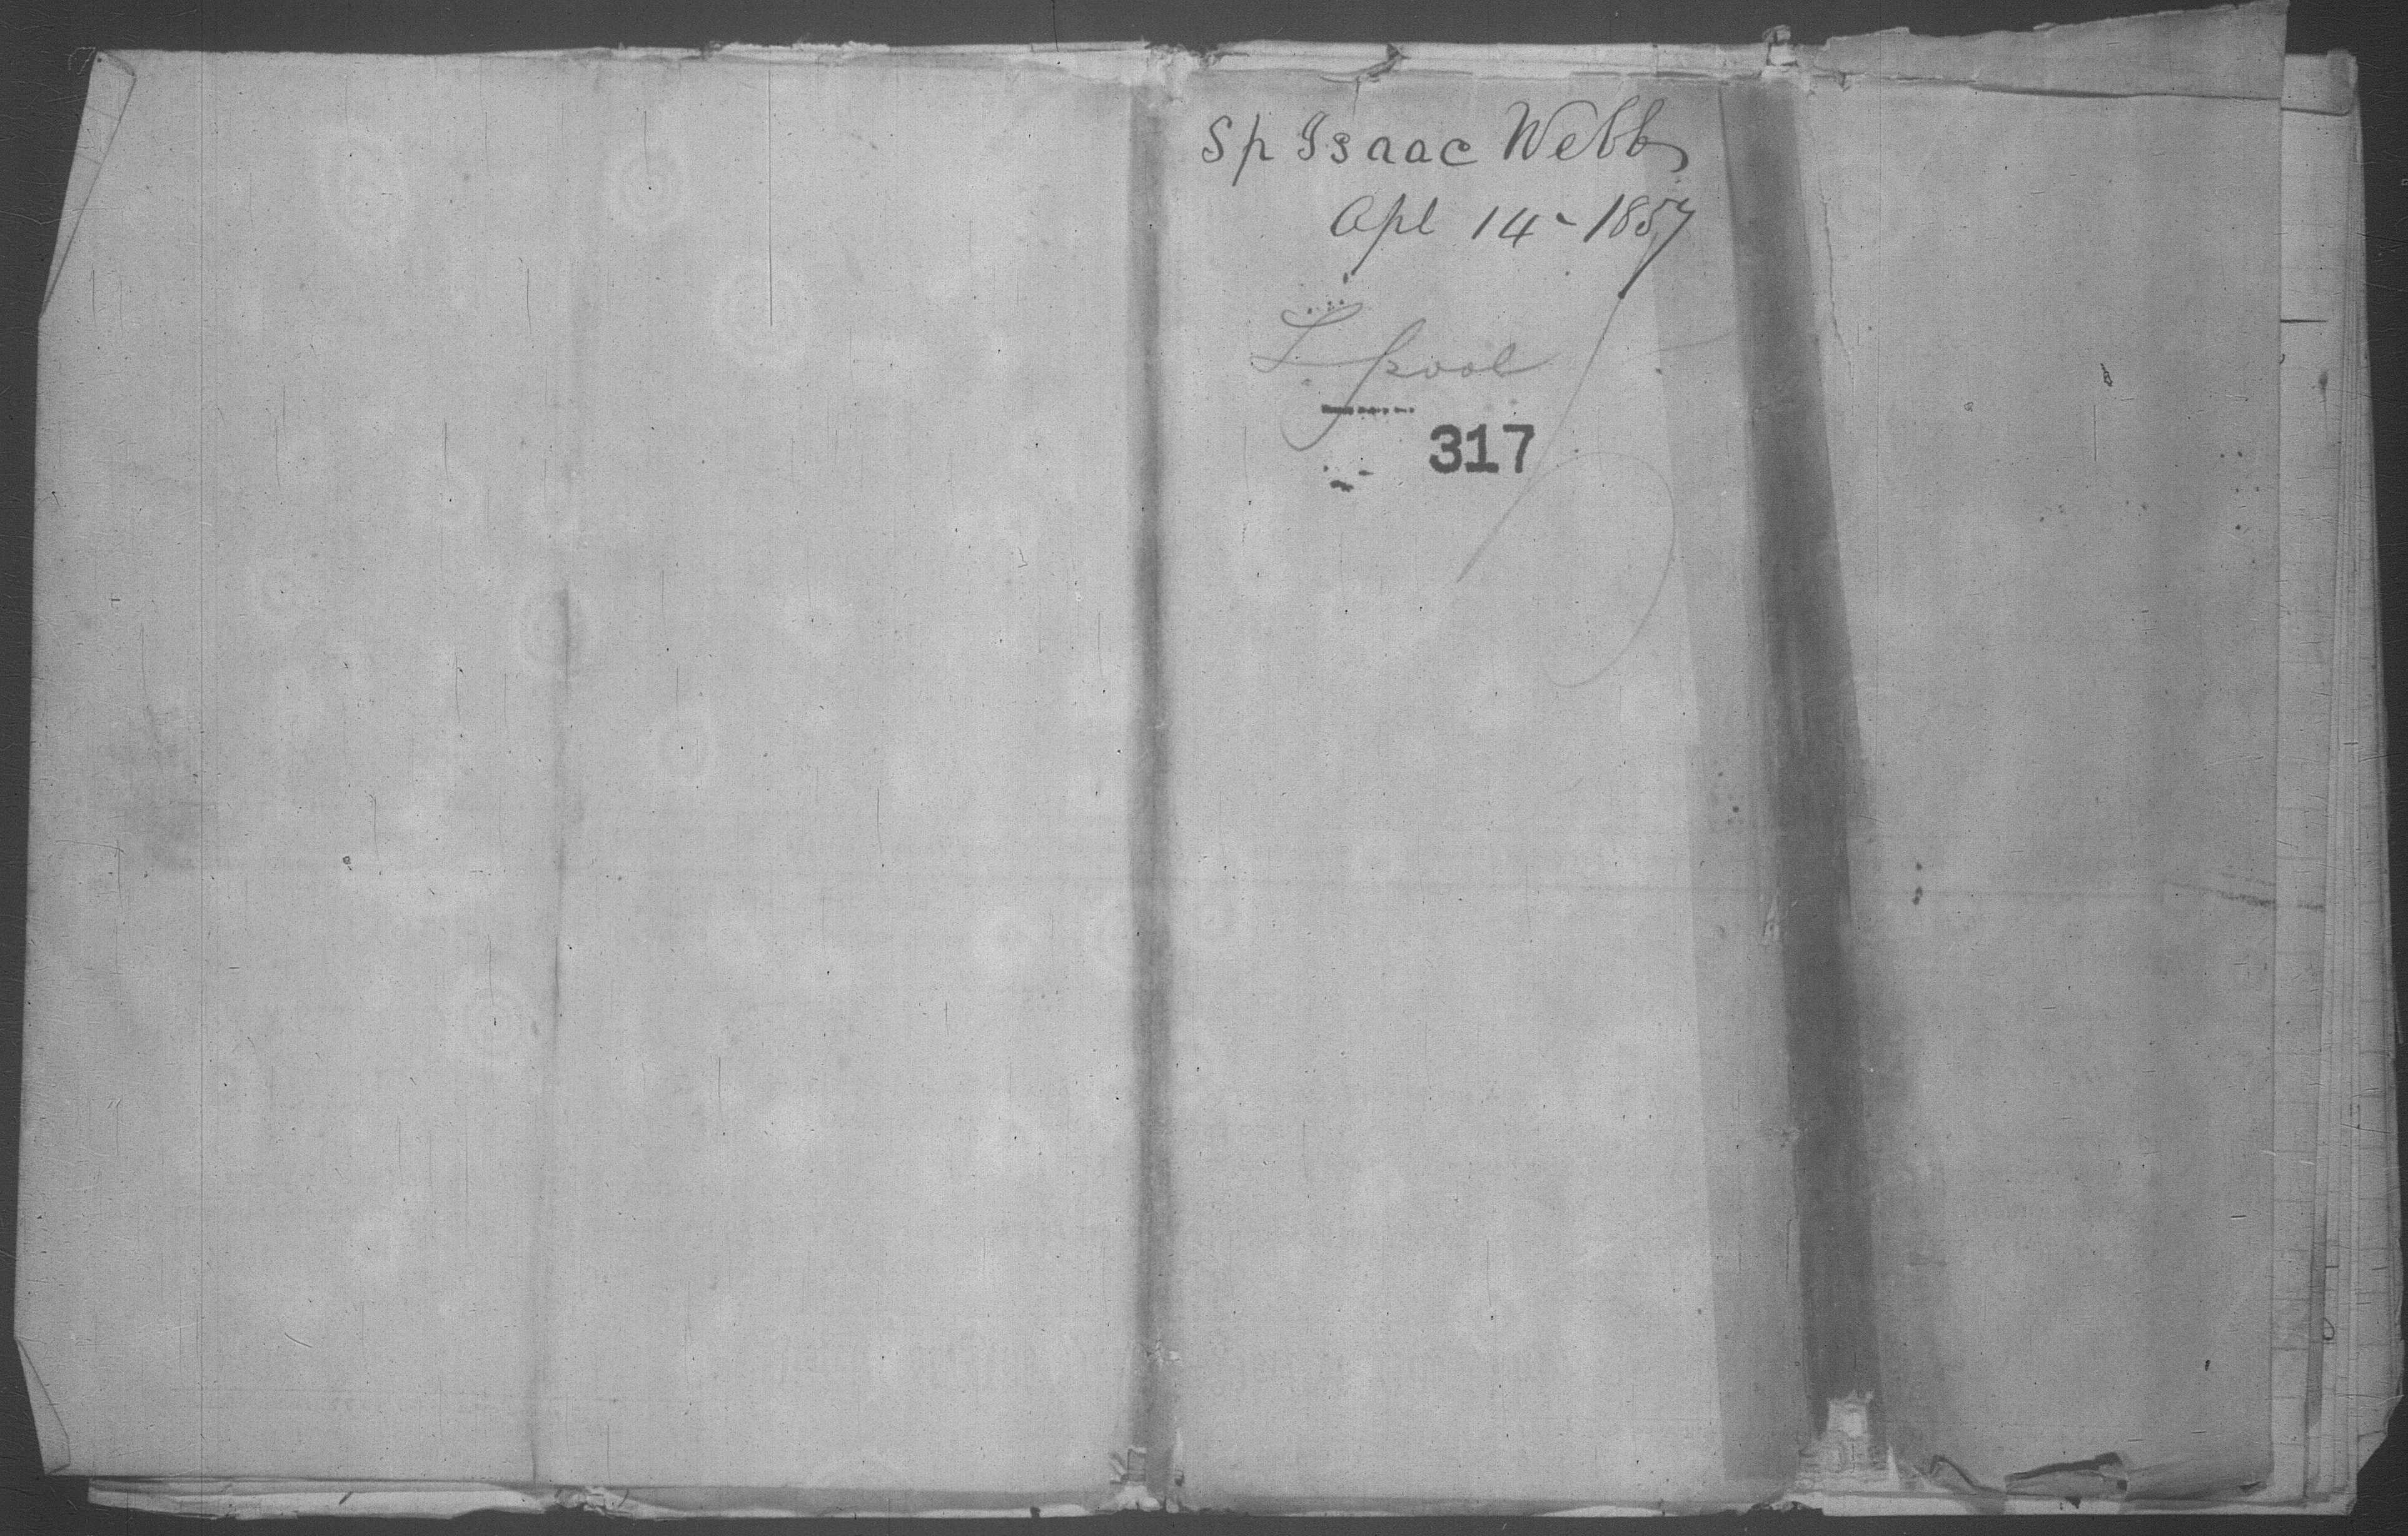 Sp Isaac Webb
Apl 14 - 1857
L.pool
317